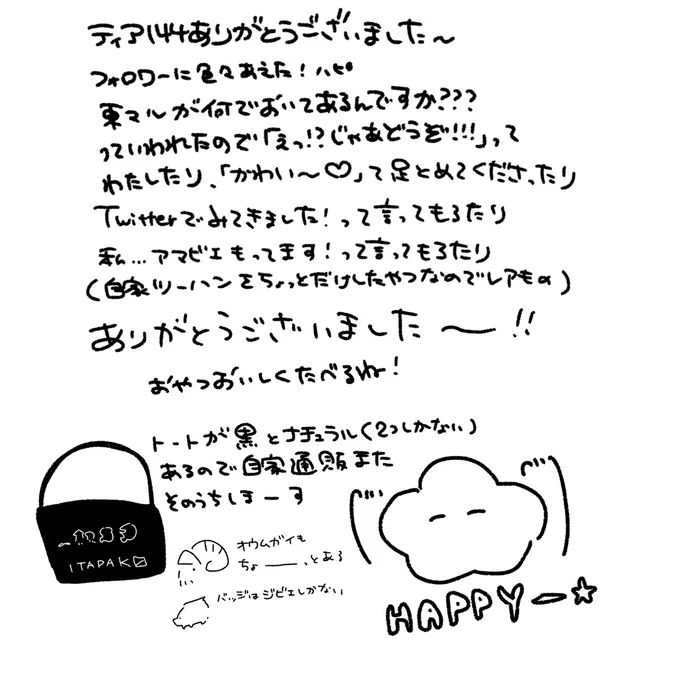 ティア144ありがとうございました〜
フォロワーに色々あえた!ハピ
東マルが何でおいてあるんですか???
っていわれたので「えっ!?じゃあどうぞ!!!」って
わたしたり、「かわい〜♡」って足とめてくださったり
Twitterでみてきました!って言ってもろたり
私…アマビエもってます!って言ってもろたり
(自家ツーハンをちょっとだけしたやつなのでレアもの)
ありがとうございました〜!!
おやつおいしくたべるね!
トートが黒とナチュラル(2つしかない)
あるので自家通販また
そのうちしまーす
ITADAK
オウムガイも
ちょーーっとある
バッジはジビエしかない
HAPPYー☆